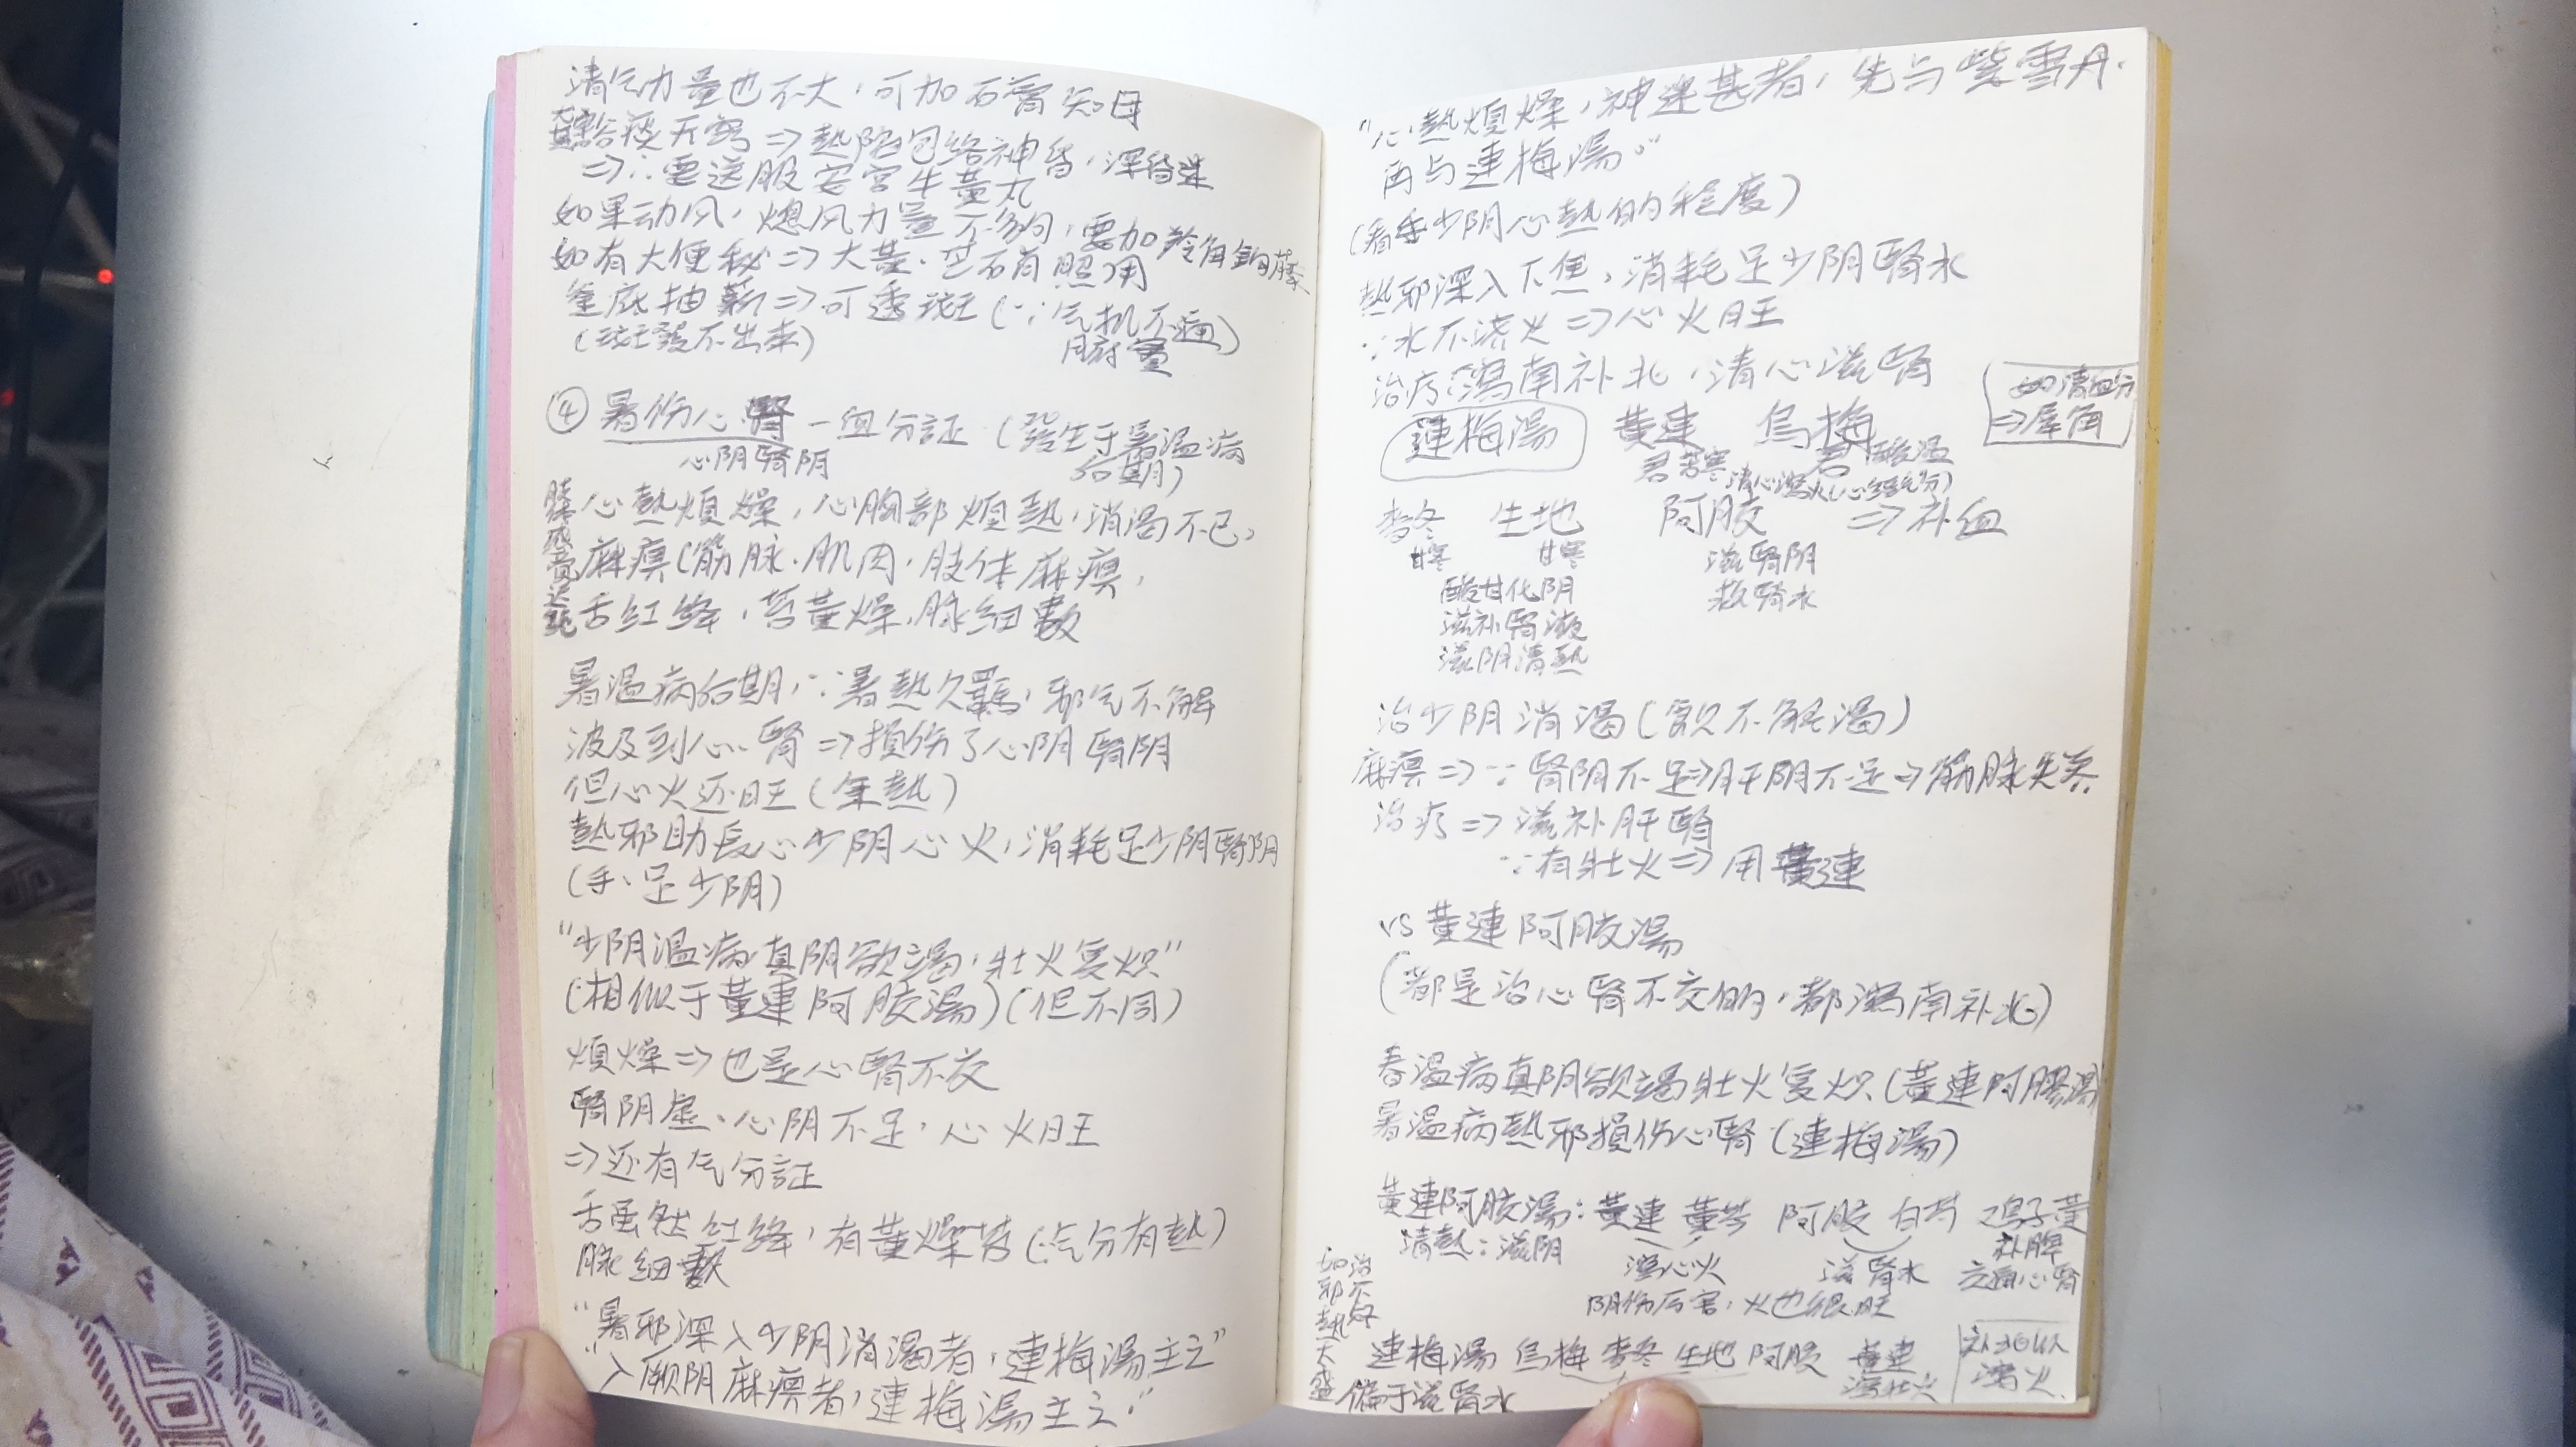 清气力量也不大,可加石膏知母
豁痰开窍⇒熱陷包络神昏,深昏迷
⇒∴要送服安宫牛黃丸
如果动风,熄风力量不夠,要加羚角鈎藤
如有大便秘⇒大黃、芒硝照用
釜底抽薪⇒可透斑(∵气机不通)
(斑發不出来) 腑實
④ 暑伤心腎—血分証 (發生于暑溫病
心阴腎阴 后期)
心熱煩燥,心胸部煩熱,消渴不已,
麻痹(筋脉、肌肉、肢体麻痹,
舌红绛,苔黃燥,脉细數
暑溫病后期,∵暑熱久羈,邪气不解
波及到心、腎⇒損伤了心阴腎阴
但心火还旺(余熱)
熱邪助長心少阴心火,消耗足少阴腎阴
(手、足少阴)
"少阴溫病真阴欲竭,壮火复炽"
(相似于黃連阿胶湯)(但不同)
煩燥⇒也是心腎不交
腎阴虚、心阴不足,心火旺
⇒还有气分証
舌虽然红绛,有黃燥苔(∵气分有熱)
脉细數
"暑邪深入少阴消渴者,連梅湯主之"
"入厥阴麻痹者,連梅湯主之"
"心熱煩燥,神迷甚者,先与紫雪丹.
再与連梅湯。"
(看手少阴心熱的程度)
熱邪深入下焦,消耗足少阴腎水
∵水不济火⇒心火旺
治疗:瀉南补北,清心滋腎
如清血分
⇒犀角
連梅湯 黃連 烏梅
君苦寒 君酸溫
清心瀉火(心經气分)
麥冬 生地 阿胶 ⇒补血
甘寒 甘寒 滋腎阴
酸甘化阴 救腎水
滋补腎液
滋阴清熱
治少阴消渴(飲不解渴)
麻痹⇒∵腎阴不足⇒肝阴不足⇒筋脉失养
治疗⇒滋补肝腎
∵有壮火⇒用黃連
vs 黃連阿胶湯
(都是治心腎不交的,都瀉南补北)
春溫病真阴欲竭壮火复炽(黃連阿膠湯)
暑溫病熱邪損伤心腎(連梅湯)
黃連阿胶湯:黃連 黃芩 阿胶 白芍 鸡子黃
清熱:滋阴 瀉心火 滋腎水 补脾
交通心腎
阴伤厉害,火也很旺
如治
邪不
熱好
大
盛
連梅湯 烏梅 麥冬 生地 阿胶 黃連
瀉壮火
偏于滋腎水
补北以
瀉火.